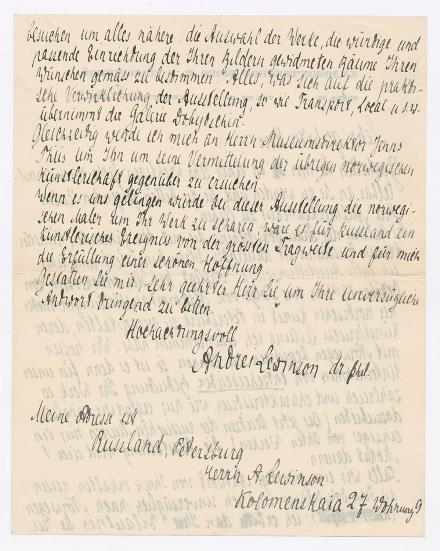 besuchen um alles nähere die Auswahl der Werke, die würdige und
passende Einrichtung der Ihren Bildern gewidmeten Räume Ihren
Wünschen gemäss zu bestimmen. Alles, was sich auf die prakti-
sche Verwirklichung der Ausstellung, so wie Transport, Local u.s.w.
übernimmt die Galerie Dobytschin.
Gleichzeitig wende ich mich an Herrn Museumsdirektor Jens
Thiis um Ihn um seine Vermittelung der übrigen norwegischen
Künstlerschaft gegenüber zu ersuchen.
Wenn es uns gelingen würde bei dieser Ausstellung die norwegi-
schen Maler um Ihr Werk zu scharen, wäre es für Russland ein
künstlerisches Ereignis von der grössten Tragweite und für mich
die Erfüllung einer schönen Hoffnung.
Gestatten Sie mir, sehr geehrter Herr Sie um Ihre unverzügliche
Antwort dringend zu bitten.
Hochachtungsvoll
André Lewinson dr. phil.
Meine Adresse ist
Russland Petersburg
Herrn A. Lewinson
Kolomenskaia 27 Wohnung 9